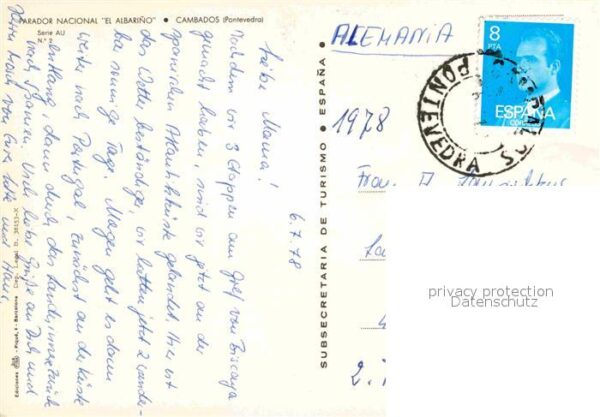 PARADOR NACIONAL "EL ALBARIÑO" • CAMBADOS (Pontevedra)
Serie AU
N.º 2
6.7.78
Liebe Mama!
Nachdem wir 3 Etappen am Golf von Biscaya
gemacht haben, sind wir jetzt an der
spanischen Atlantikküste gelandet. Hier ist
das Wetter beständiger, wir hatten jetzt 2 wunder-
bar sonnige Tage. Morgen geht es dann
weiter nach Portugal, zunächst an der Küste
entlang, dann durch das Landesinnere zurück
nach Spanien. Viele liebe Grüße an Dich und
von Eure und Hans
Ediciones - Piqué, 4 - Barcelona Dep. Legal B.
SUBSECRETARIA DE TURISMO • ESPAÑA •
ALEMANIA
8
PTA
ESPAÑA
CORREOS
PONTEVEDRA
1978
Frau
privacy protection
Datenschutz